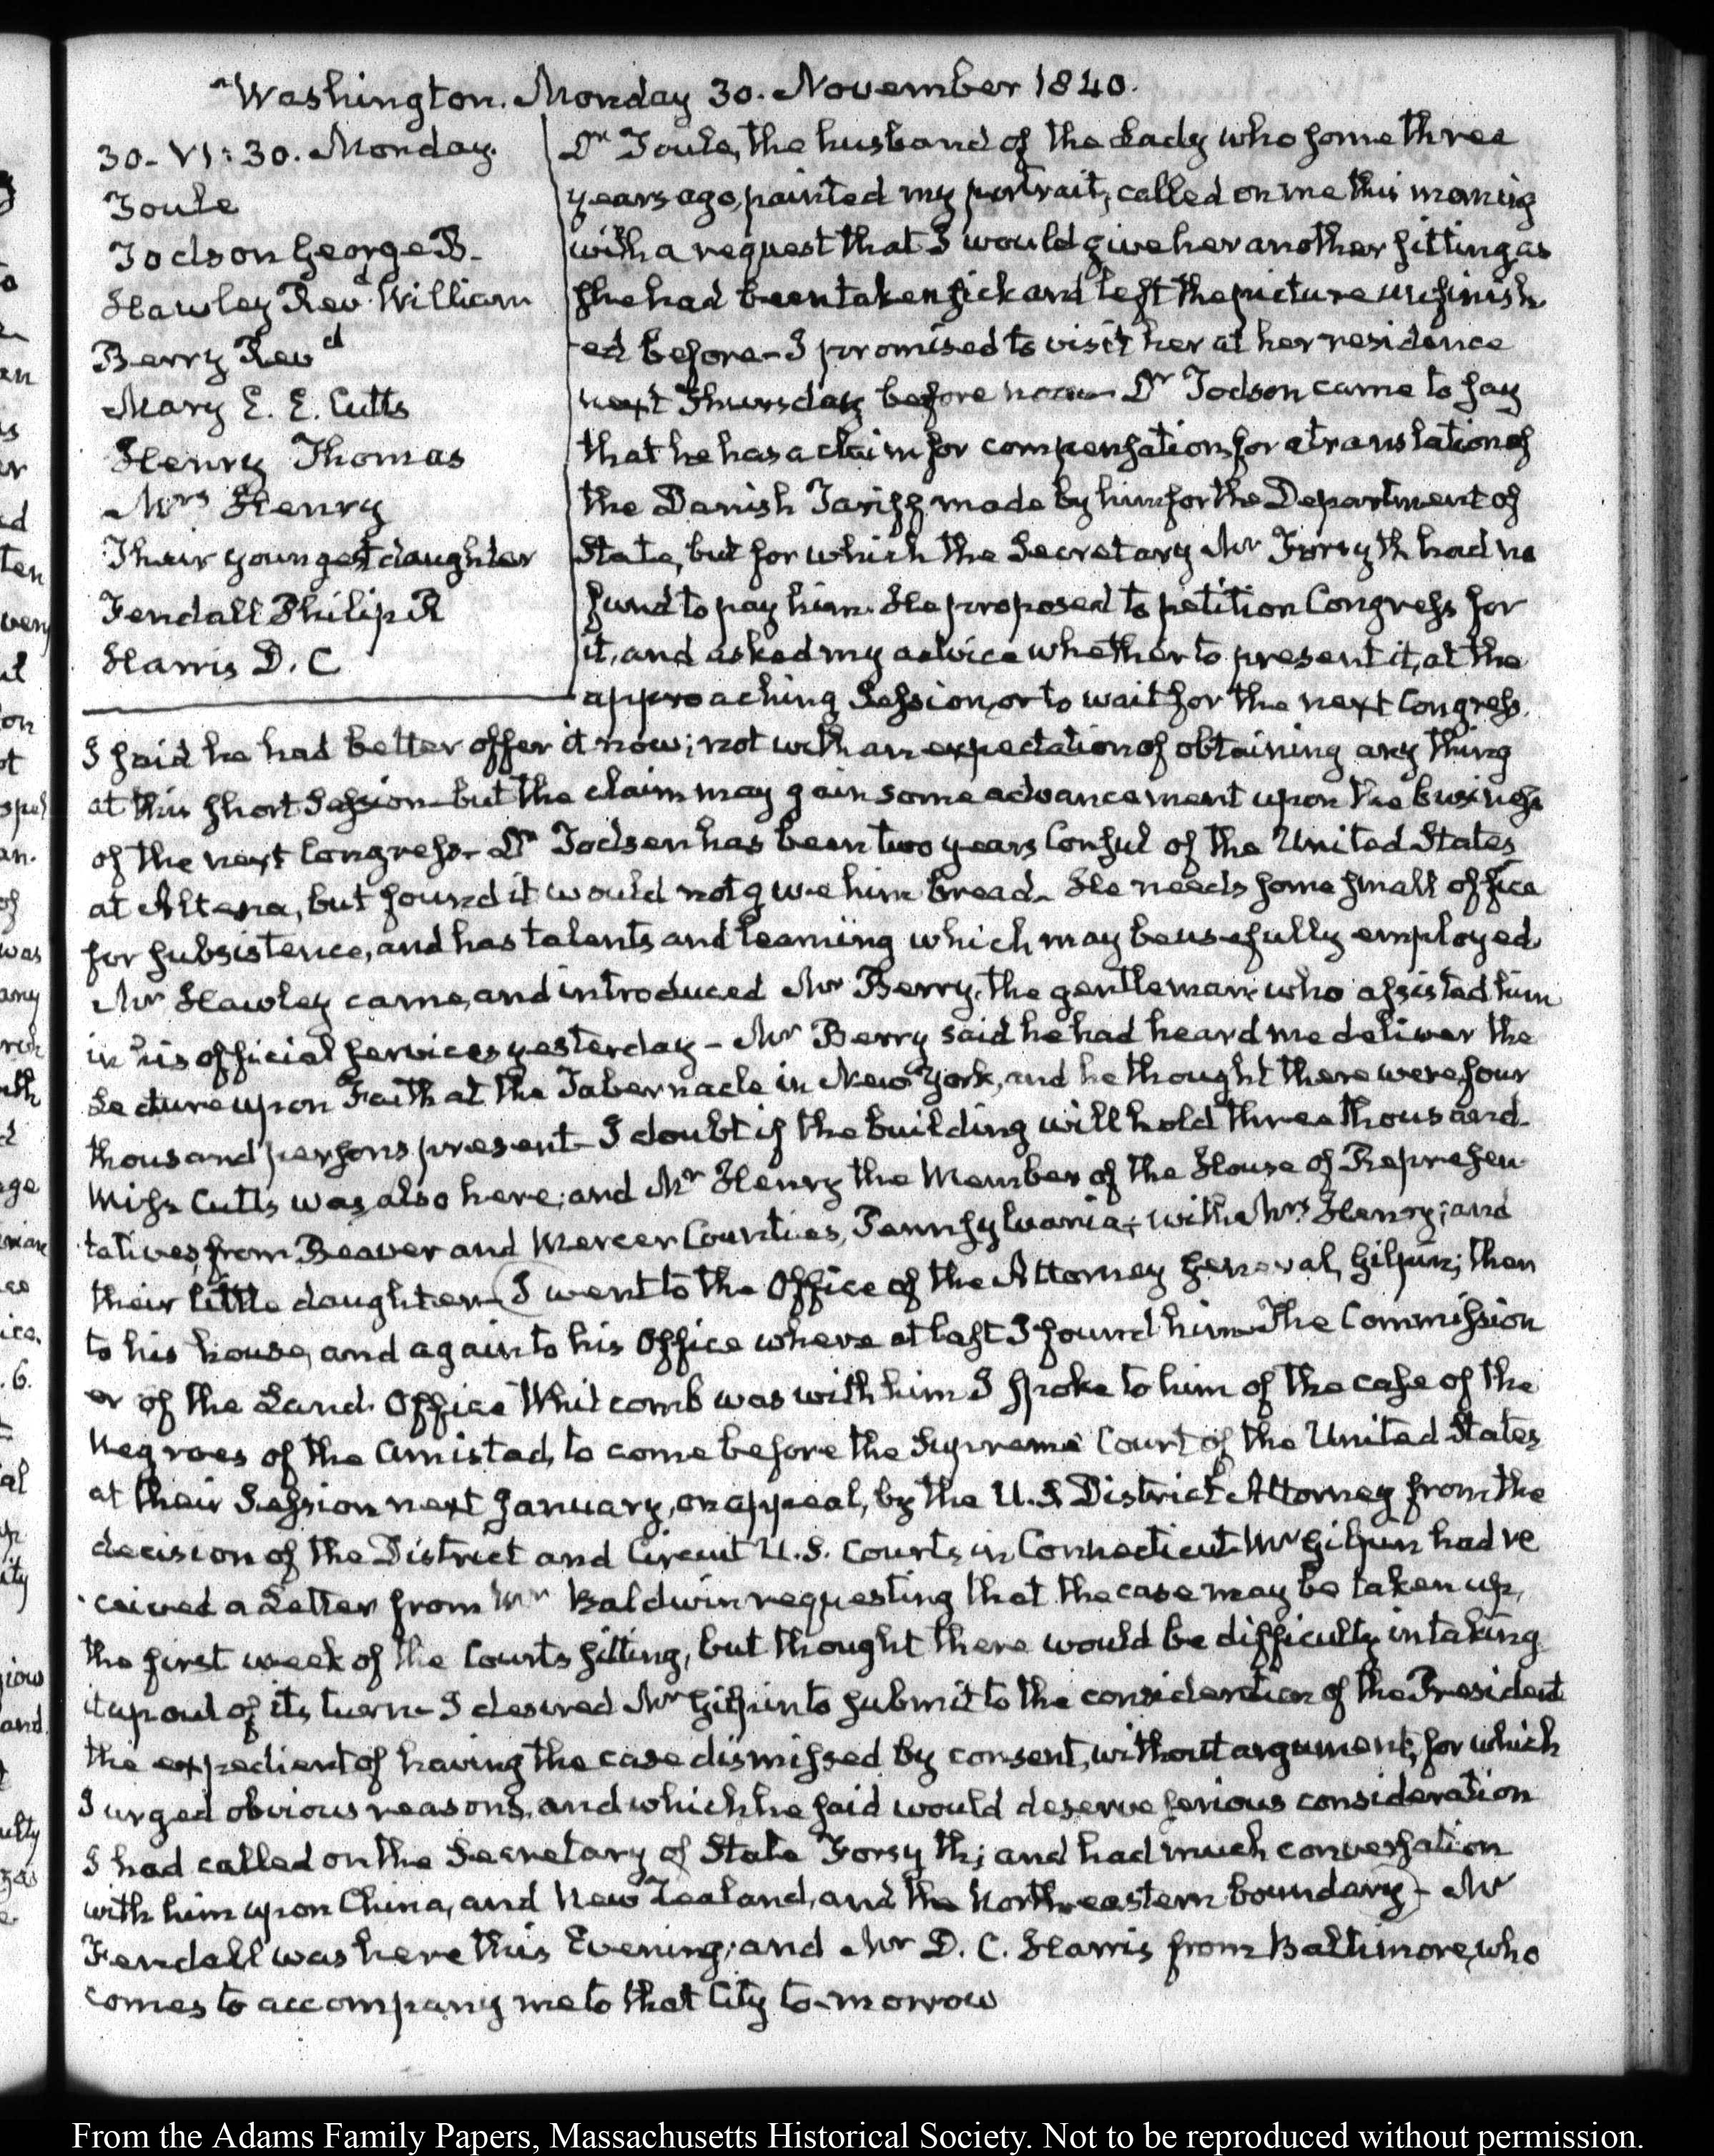 Washington. Monday 30. November 1840.
30. VI:30. Monday.
Toule
Todson George B.
Hawley Revd. William
Berry Revd
Mary E. E. Cutts
Henry Thomas
Mrs Henry
Their youngest daughter
Fendall Philip R
Harris D. C
Dr Toule, the husband of the Lady who some three
years ago, painted my portrait, called on me this morning
with a request that I would give her another sitting as
she had been taken sick and left the picture unfinish
-ed before- I promised to visit her at her residence
next Thursday before noon- Dr Todson came to say
that he has a claim for compensation, for a translation of
the Danish Tariff, made by him for the Department of
State, but for which the Secretary Mr Forsyth had no
fund to pay him. He proposed to petition Congress for
it, and asked my advice whether to present it, at the
approaching Session, or to wait for the next Congress.
I said he had better offer it now; not with an expectation of obtaining any thing
at this short Session- but the claim may gain some advancement upon the business
of the next Congress- Dr Todson has been two years Consul of the United States
at Altona, but found it would not give him bread. He needs some small office
for subsistence, and has talents and learning which may be usefully employed
Mr Hawley came, and introduced Mr Berry, the gentleman who assisted him
in his official services yesterday- Mr Berry said he had heard me deliver the
Lecture upon Faith at the Tabernacle in New York, and he thought there were four
thousand persons present- I doubt if the building will hold three thousand-
Miss Cutts was also here; and Mr Henry the Member of the House of Represen
tatives, from Beaver and Mercer Counties, Pennsylvania; with Mrs Henry; and
their little daughter- I went to the Office of the Attorney General, Gilpin; then
to his house, and again to his Office where at last I found him- The Commission
er of the Land Office Whitcomb was with him I spoke to him of the case of the
Negroes of the Amistad, to come before the Supreme Court of the United States
at their Session next January, on appeal, by the U.S District Attorney from the
decision of the District and Circuit U.S. Courts in Connecticut- Mr Gilpin had re
ceived a Letter from Mr Baldwin requesting that the case may be taken up,
the first week of the Courts sitting, but thought there would be difficulty in taking
it up out of its turn- I desired Mr Gilpin to submit to the consideration of the President
the expedient of having the case dismissed by consent, without argument, for which
I urged obvious reasons, and which he said would deserve serious consideration
I had called on the Secretary of State Forsyth; and had much conversation
with him upon China, and New Zealand, and the North eastern boundary- Mr
Fendall was here this Evening; and Mr D. C. Harris from Baltimore, who
comes to accompany me to that City to-morrow
From the Adams Family Papers, Massachusetts Historical Society. Not to be reproduced without permission.